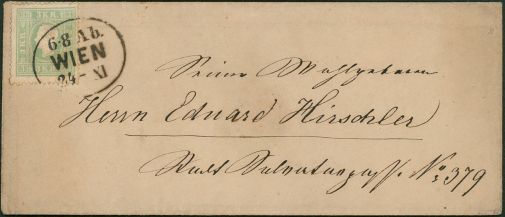 6-8 Ab.
WIEN
24 - XI
Seine Wohlgeboren
Herrn Eduard Hirschler
Stadt Salvatorgasse No 379